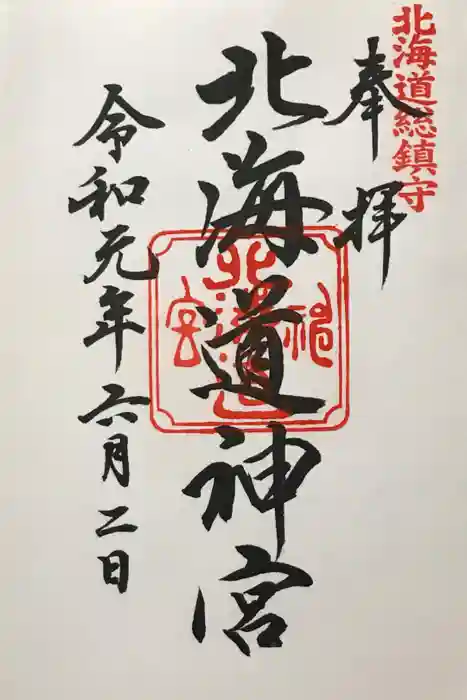 北海道総鎮守
奉拝
北海道神宮
北海道神宮
令和元年六月二日